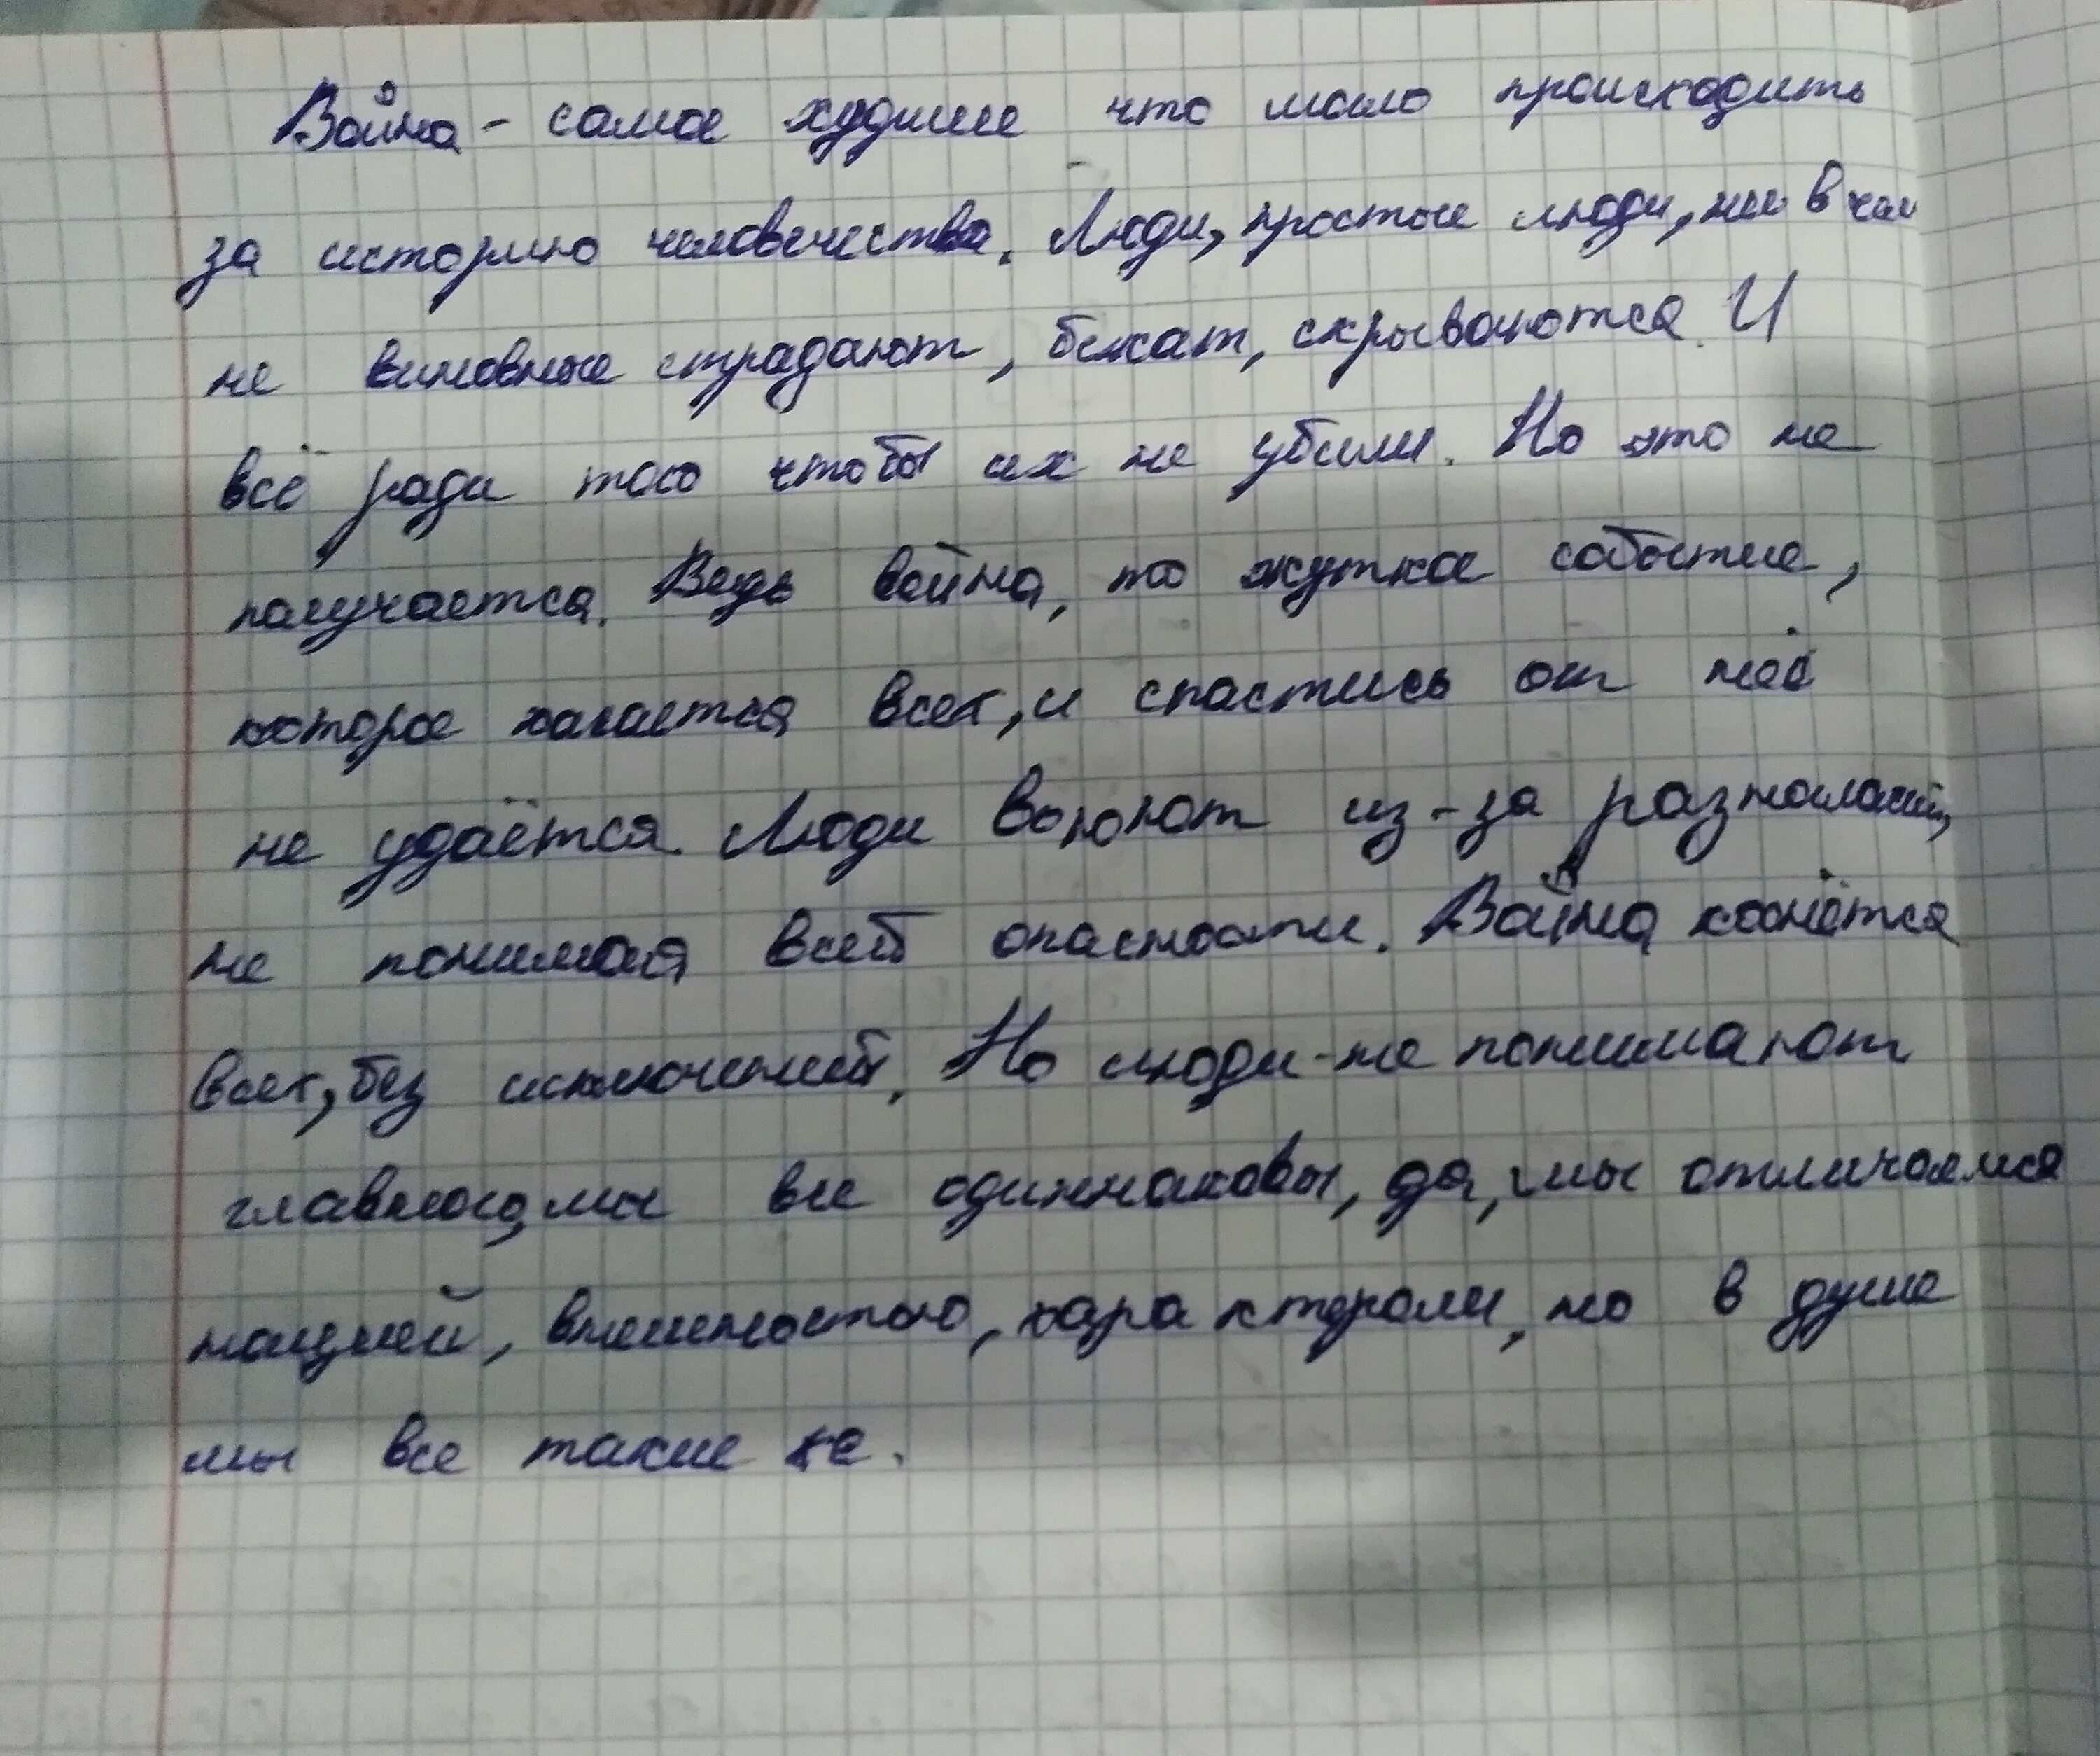 Война - самое худшее что могло происходить
за историю человечества. Люди, простые люди, ни в чём
не виновные страдают, бежат, скрываются. И
всё ради того чтобы их не убили. Но это не
получается. Ведь война, то жуткое событие,
которое касается всех, и спастись от неё
не удаётся. Люди воюют из-за разногласий,
не понимая всей опасности. Война коснётся
всех, без исключений. Но люди не понимают
главного, мы все одинаковы, да, мы отличаемся
нацией, внешностью, характером, но в душе
мы все такие же.